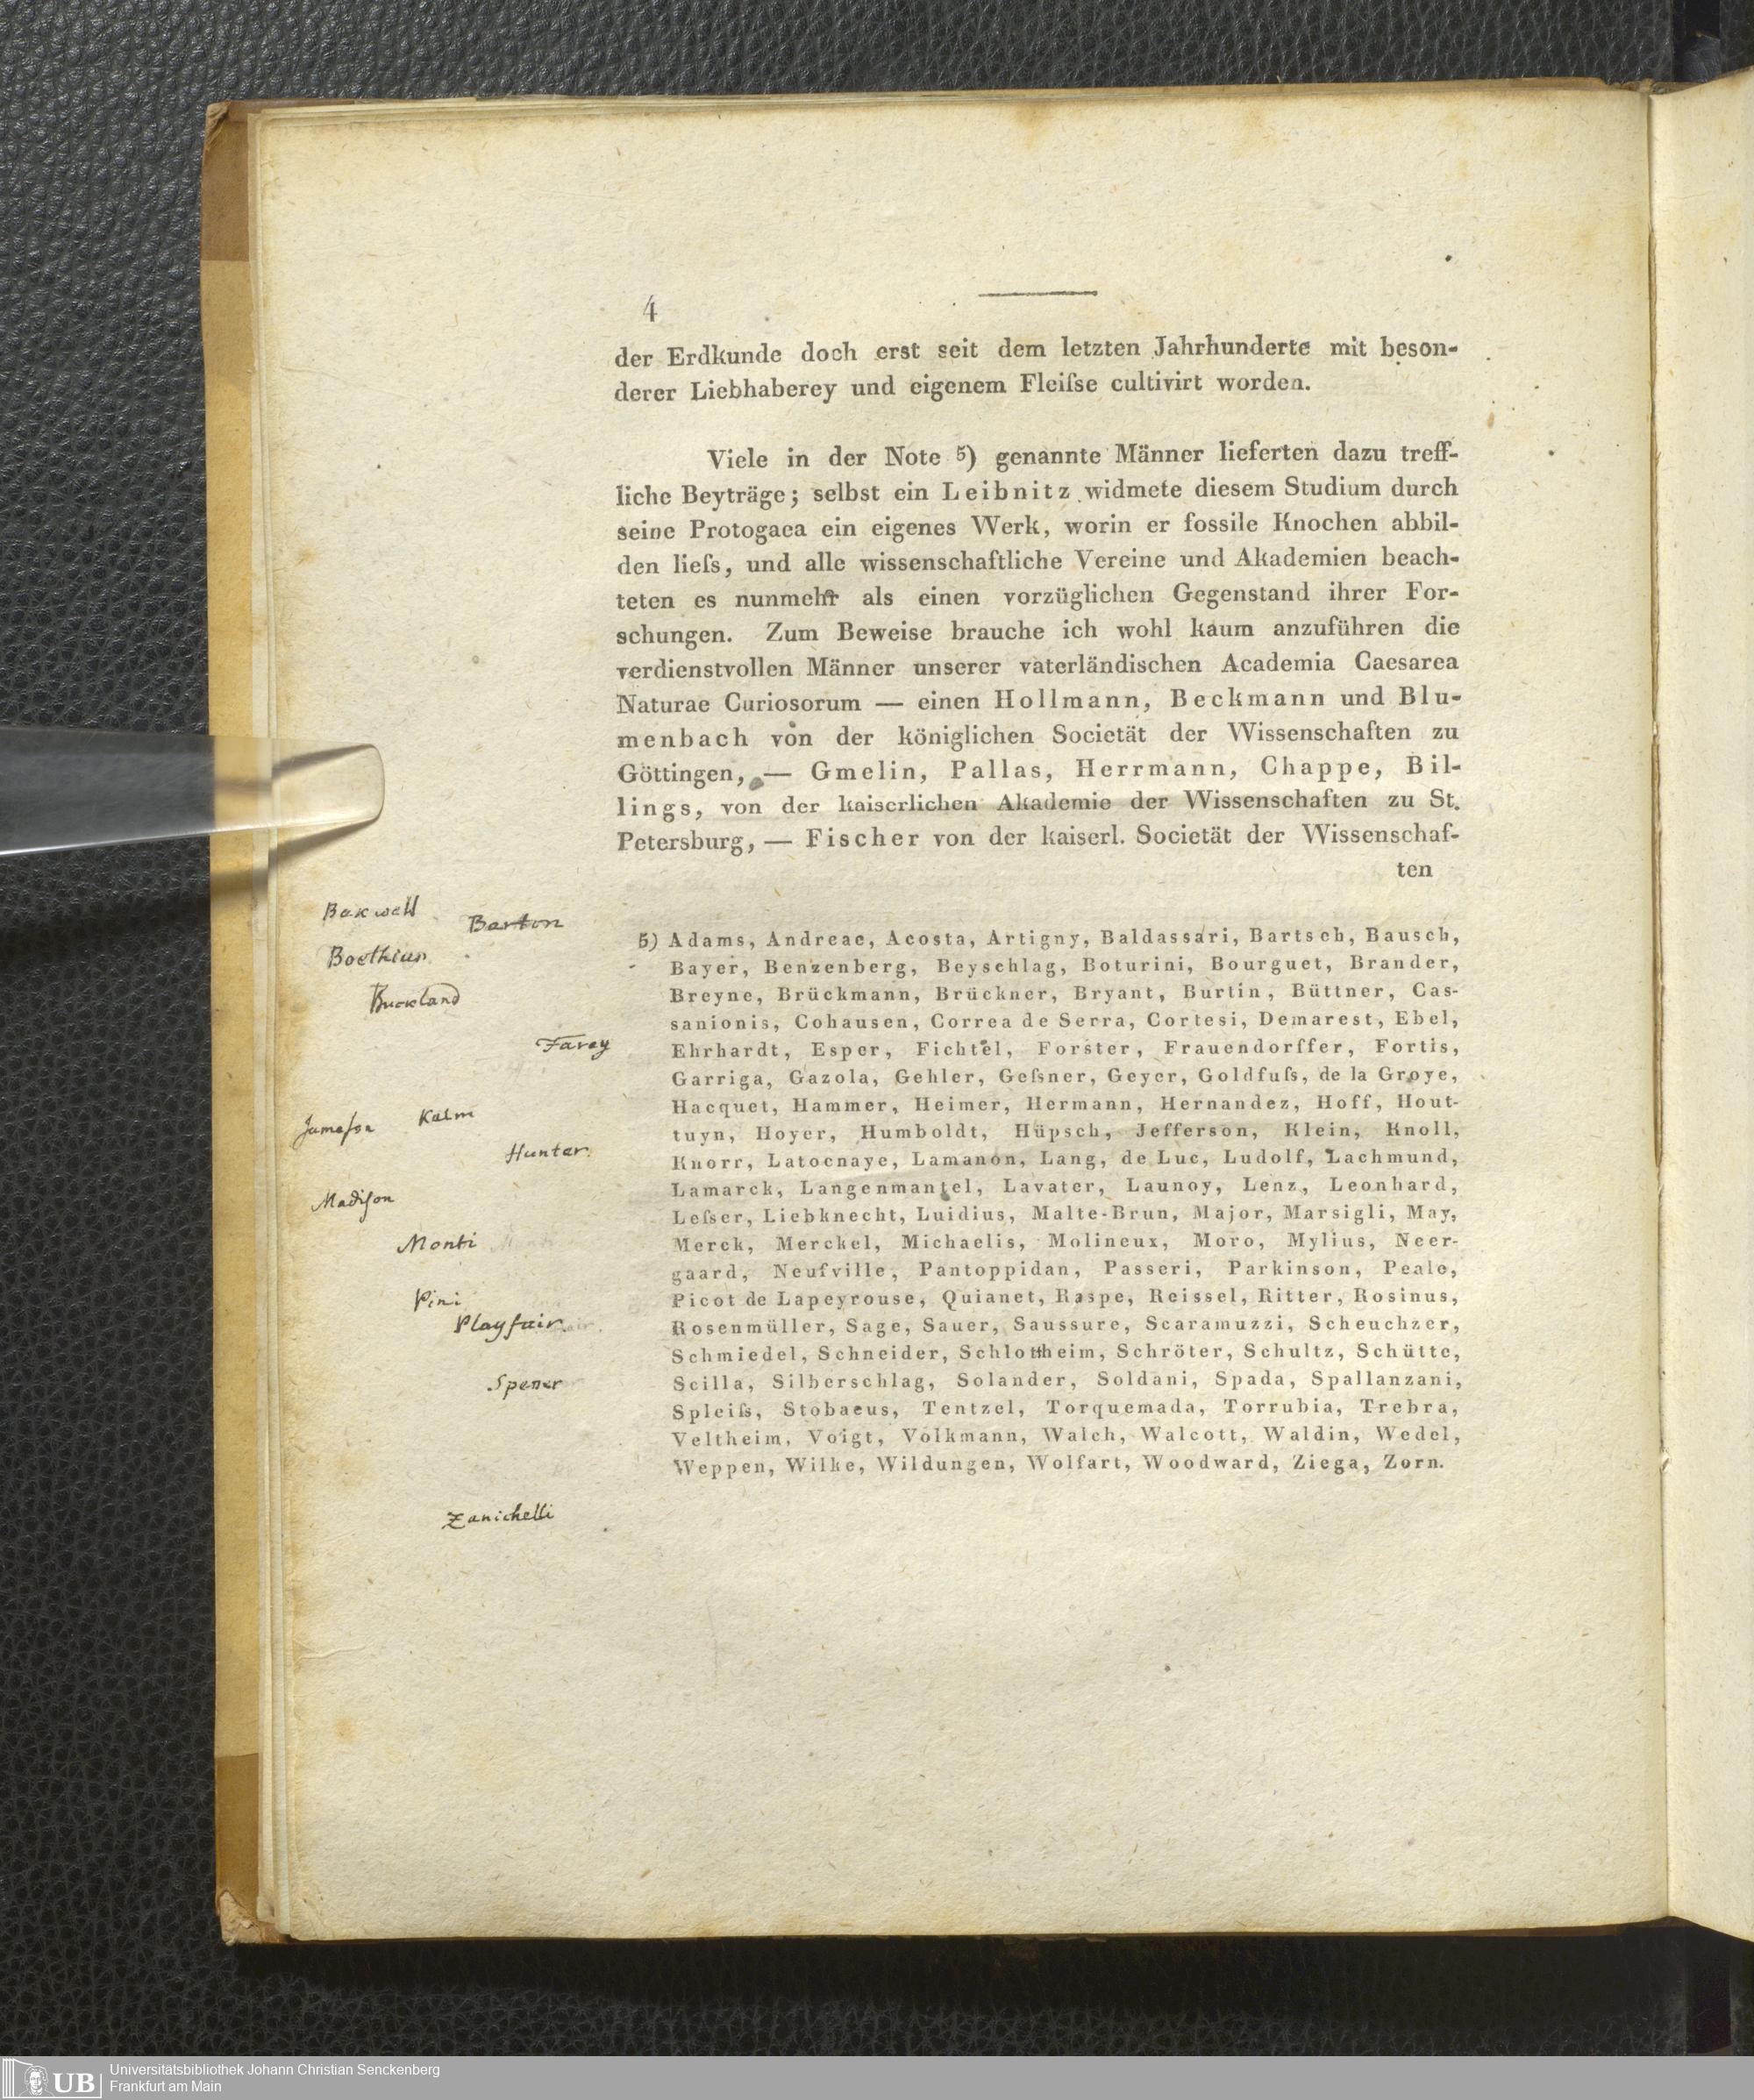 4
der Erdkunde doch erst seit dem letzten Jahrhunderte mit beson-
derer Liebhaberey und eigenem Fleiſse cultivirt worden.
Viele in der Note 5) genannte Männer lieferten dazu treff-
liche Beyträge; selbst ein Leibnitz widmete diesem Studium durch
seine Protogaea ein eigenes Werk, worin er fossile Knochen abbil-
den lieſs, und alle wissenschaftliche Vereine und Akademien beach-
teten es nunmehr als einen vorzüglichen Gegenstand ihrer For-
schungen. Zum Beweise brauche ich wohl kaum anzuführen die
verdienstvollen Männer unserer vaterländischen Academia Caesarea
Naturae Curiosorum — einen Hollmann, Beckmann und Blu-
menbach von der königlichen Societät der Wissenschaften zu
Göttingen, — Gmelin, Pallas, Herrmann, Chappe, Bil-
lings, von der kaiserlichen Akademie der Wissenschaften zu St.
Petersburg, — Fischer von der kaiserl. Societät der Wissenschaf-
ten
Bakwell
Barton
Boethius
Buckland
Farey
Jameſon
Kalm
Hunter.
Madiſon
Monti
Pini
Playfair.
Spener
Zanichelli
5) Adams, Andreae, Acosta, Artigny, Baldassari, Bartsch, Bausch,
Bayer, Benzenberg, Beyschlag, Boturini, Bourguet, Brander,
Breyne, Brückmann, Brückner, Bryant, Burtin, Büttner, Cas-
sanionis, Cohausen, Correa de Serra, Cortesi, Demarest, Ebel,
Ehrhardt, Esper, Fichtel, Forster, Frauendorffer, Fortis,
Garriga, Gazola, Gehler, Geſsner, Geyer, Goldfuſs, de la Groye,
Hacquet, Hammer, Heimer, Hermann, Hernandez, Hoff, Hout-
tuyn, Hoyer, Humboldt, Hüpsch, Jefferson, Klein, Knoll,
Knorr, Latocnaye, Lamanon, Lang, de Luc, Ludolf, Lachmund,
Lamarck, Langenmantel, Lavater, Launoy, Lenz, Leonhard,
Leſser, Liebknecht, Luidius, Malte-Brun, Major, Marsigli, May,
Merck, Merckel, Michaelis, Molineux, Moro, Mylius, Neer-
gaard, Neufville, Pantoppidan, Passeri, Parkinson, Peale,
Picot de Lapeyrouse, Quianet, Raspe, Reissel, Ritter, Rosinus,
Rosenmüller, Sage, Sauer, Saussure, Scaramuzzi, Scheuchzer,
Schmiedel, Schneider, Schlottheim, Schröter, Schultz, Schütte,
Scilla, Silberschlag, Solander, Soldani, Spada, Spallanzani,
Spleiſs, Stobaeus, Tentzel, Torquemada, Torrubia, Trebra,
Veltheim, Voigt, Volkmann, Walch, Walcott, Waldin, Wedel,
Weppen, Wilke, Wildungen, Wolfart, Woodward, Ziega, Zorn.
UB
Universitätsbibliothek Johann Christian Senckenberg
Frankfurt am Main